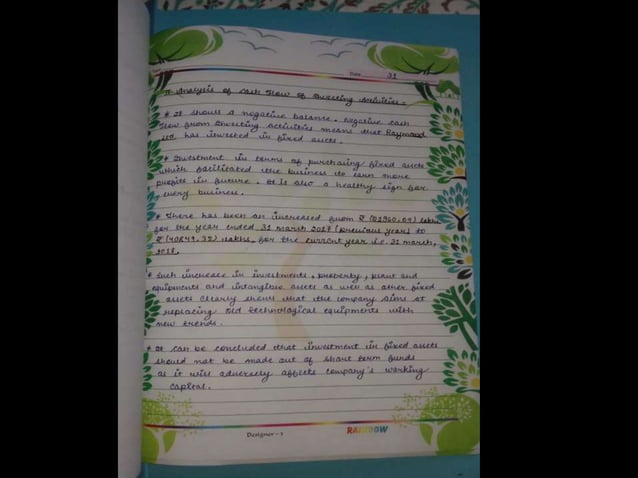 Date 31
II Analysis of Cash Flow of Investing Activities :-
* It shows a negative balance. Negative cash
flow from Investing activities means that Raymond
Ltd. has invested in fixed assets.
* Investment in terms of purchasing fixed assets
which facilitated the business to earn more
profits in future. It is also a healthy sign for
every business.
* There has been an increased from ₹ lakhs
for the year ended 31 march 2017 (previous year) to
₹ (40849.32) lakhs, for the current year i.e. 31 march,
2018.
* Such increase in investments, property, plant and
equipments and intangible assets as well as other fixed
assets clearly shows that the company aims at
replacing old technological equipments with
new trends.
* It can be concluded that investment in fixed assets
should not be made out of short term funds
as it will adversely affects company's working
capital.
Designer-1
RAINBOW